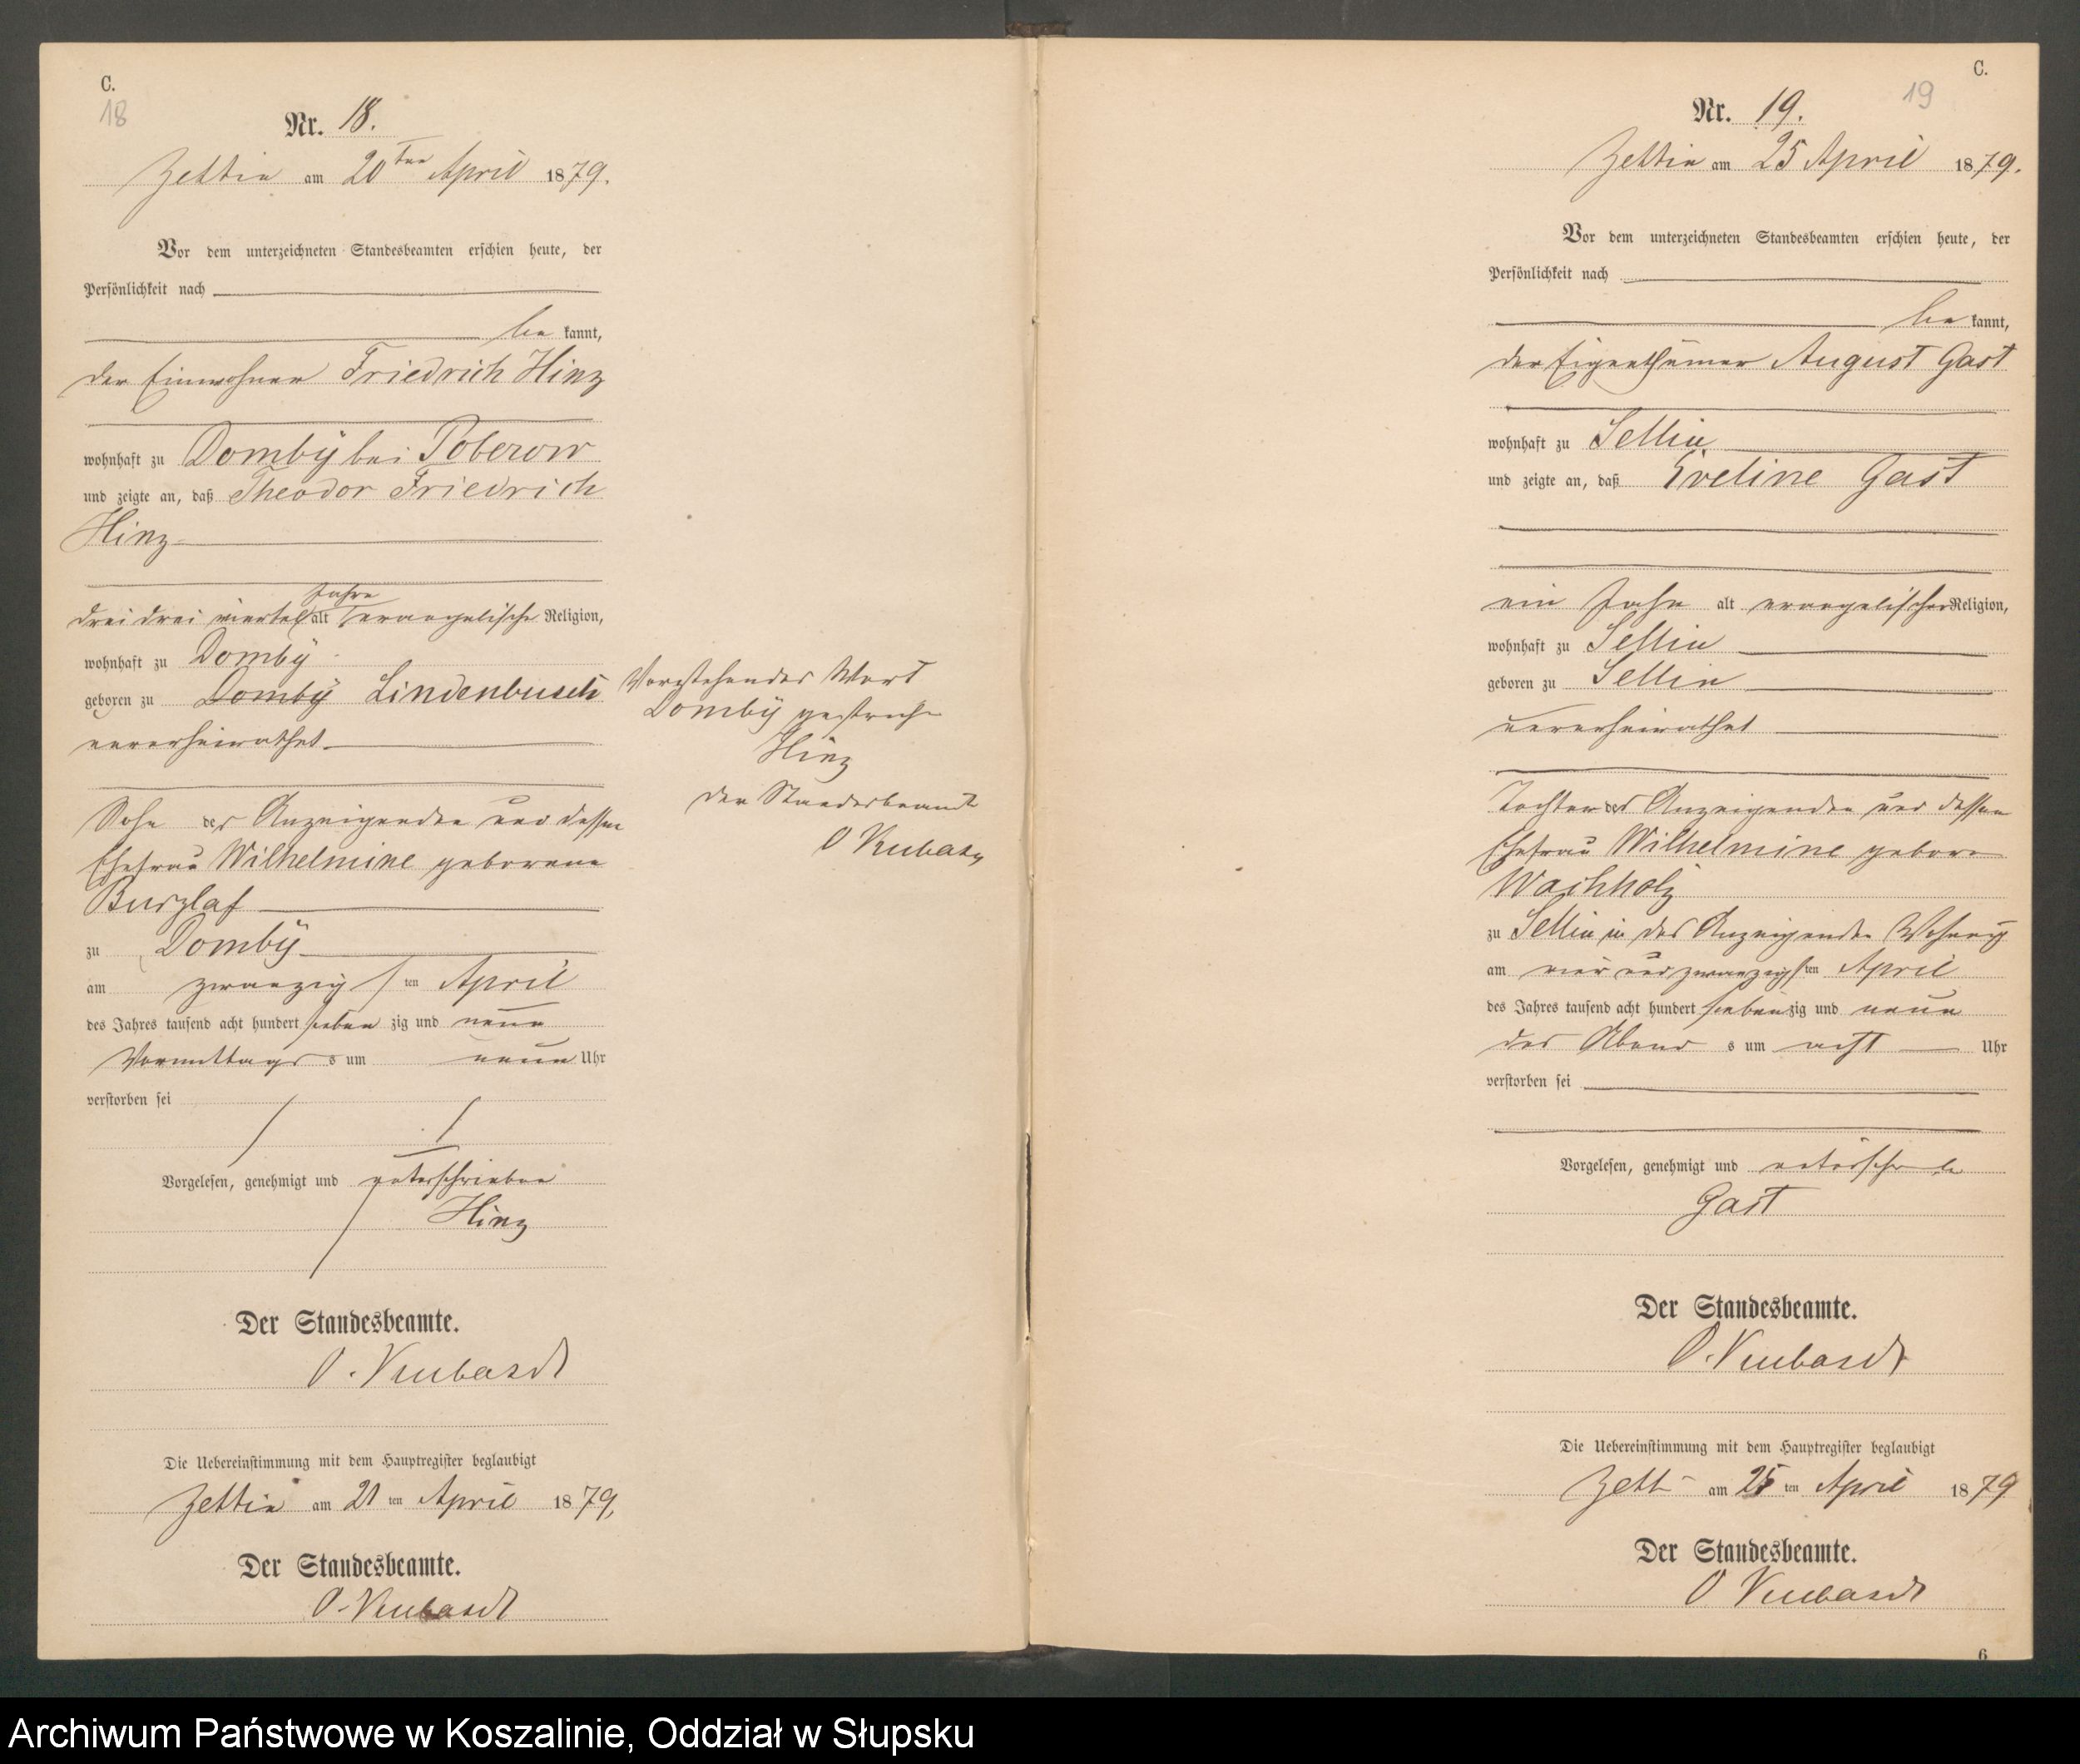 C.
18
Nr. 18.
Zettin am 20ten April 1879.
Vor dem unterzeichneten Standesbeamten erschien heute, der
Persönlichkeit nach
be kannt,
der Einwohner Friedrich Hinz
wohnhaft zu Domby bei Poberow
und zeigte an, daß Theodor Friedrich
Hinz
Jahre
drei drei viertel alt evangelische Religion,
wohnhaft zu Domby
geboren zu Domby Lindenbusch
unverheirathet
Sohn des Anzeigenden und dessen
Ehefrau Wilhelmine geborene
Burzlaf
zu Domby
am zwanzigsten April
des Jahres tausend acht hundert sieben zig und neun
Vormittags s um neun Uhr
verstorben sei
Vorgelesen, genehmigt und unterschrieben
Hinz
Der Standesbeamte.
O.
Die Uebereinstimmung mit dem Hauptregister beglaubigt
Zettin am 21 ten April 1879,
Der Standesbeamte.
O.
Vorstehendes Wort
Domby gestrichen
Hinz
Der Standesbeamte
O
C.
19
Nr. 19.
Zettin am 25 April 1879.
Vor dem unterzeichneten Standesbeamten erschien heute, der
Persönlichkeit nach
be kannt,
der Eigenthümer August Gast
wohnhaft zu Sellin
und zeigte an, daß Eveline Gast
ein Jahr alt evangelischer Religion,
wohnhaft zu Sellin
geboren zu Sellin
unverheirathet
Tochter des Anzeigenden und dessen
Ehefrau Wilhelmine geborene
Wachholz
zu Sellin in des Anzeigenden Wohnung
am vier und zwanzigsten April
des Jahres tausend acht hundert siebenzig und neun
des Abend s um acht Uhr
verstorben sei
Vorgelesen, genehmigt und unterschrieben
Gast
Der Standesbeamte.
O.
Die Uebereinstimmung mit dem Hauptregister beglaubigt
Zett am 25 ten April 1879
Der Standesbeamte.
O
6
Archiwum Państwowe w Koszalinie, Oddział w Słupsku